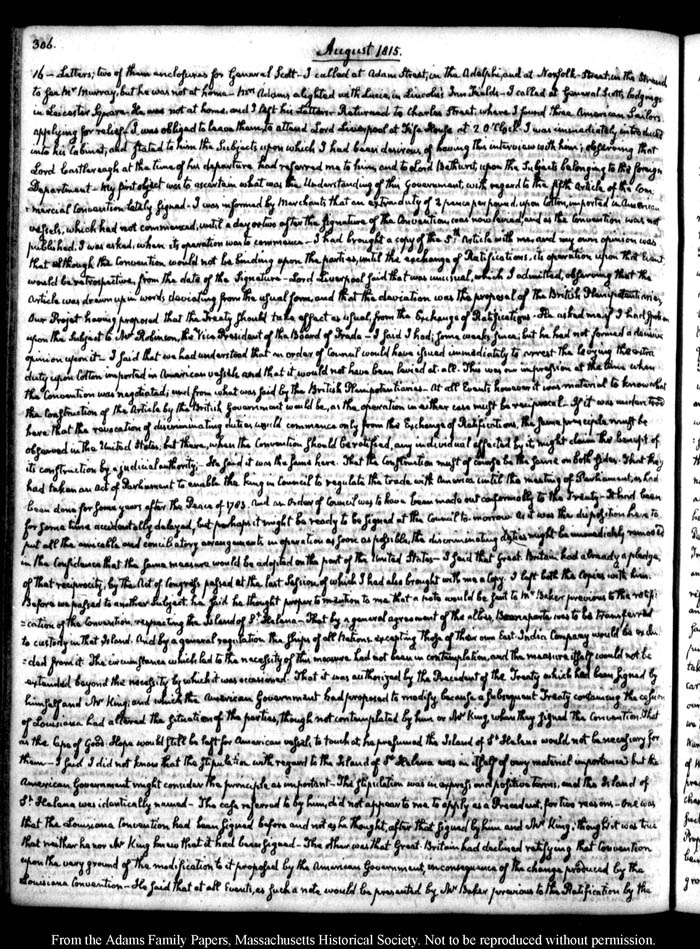 306.
August 1815.
16 — Letters; two of them enclosures for General Scott — I called at Adam Street, in the Adelphi, and at Norfolk-Street, in the Strand
to see Mr Murray, but he was not at home — Mrs Adams alighted with Lucy, in Lincoln's Inn Fields — I called at General Scott's lodgings
in Leicester Square. He was not at home, and I left his Letters. Returned to Charles Street, where I found three American Sailors
applying for relief. I was obliged to leave them, to attend Lord Liverpool at Fife House at 2 O'Clock. I was immediately introduced
into his Cabinet, and stated to him the Subjects upon which I had been desirous of having this interview with him; observing that
Lord Castlereagh at the time of his departure had referred me to him, and to Lord Bathurst, upon the Subjects belonging to the foreign
Department — My first object was to ascertain what was the Understanding of this Government, with regard to the fifth Article of the Com-
:mercial Convention lately signed — I was informed by Merchants that an extra duty of 2 pence per pound, upon Cotton, imported in American
vessels, which had not commenced, until a day or two after the Signature of the Convention, was now levied, and as the Convention was not
published, I was asked, when its operation was to commence — I had brought a copy of the 5th Article with me, and my own opinion was
that although the Convention would not be binding upon the parties, until the exchange of Ratifications, its operation upon that Event
would be retrospective, from the date of the Signature — Lord Liverpool said that was unusual, which I admitted, observing that the
Article was drawn up in words deviating from the usual form, and that the deviation was the proposal of the British Plenipotentiaries,
Our Projet having proposed that the Treaty should take effect as usual, from the Exchange of Ratifications — He asked me if I had spoken
upon the Subject to Mr Robinson, the Vice President of the Board of Trade — I said I had, some weeks since; but he had not formed a decisive
opinion upon it — I said that we had understood that an order of Council would have issued immediately to arrest the levying the extra
duty upon Cotton imported in American vessels and that it would not have been levied at all. This was our impression at the time when
the Convention was negotiated, and from what was said by the British Plenipotentiaries — At all Events however it was material to know what
the Construction of the Article by the British Government would be, as the operation in either case must be reciprocal. If it was understood
here that the revocation of discriminating duties would commence only from the Exchange of Ratifications, the same principle must be
observed in the United States. but there, when the Convention should be ratified, any individual affected by it, might claim the benefit of
its construction by a judicial authority; He said it was the same here. That the Construction must of course be the same on both sides. That they
had taken an Act of Parliament to enable the King in Council to regulate the trade with America until the meeting of Parliament, as had
been done for some years after the Peace of 1783. And an Order of Council was to have been made out conformably to the Treaty. It had been
for some time accidentally delayed, but perhaps it might be ready to be signed at the Council to-morrow. As it was the disposition here to
put all the amicable and conciliatory arrangements in operation as soon as possible, the discriminating duties might be immediately removed
in the confidence that the same measure would be adopted on the part of the United States — I said that Great Britain had already a pledge,
of that reciprocity, by the Act of Congress passed at the last Session, of which I had also brought with me a Copy. I left both the Copies with him.
Before we passed to another subject he said he thought proper to mention to me that a note would be sent to Mr Baker previous to the ratifi-
:cation of the Convention, respecting the Island of St Helena — That by a general agreement of the allies, Buonaparte was to be transferred
to custody in that Island. And by a general regulation the ships of all Nations, excepting those of their own East-India Company would be exclu-
:ded from it. The circumstance which led to the necessity of this measure had not been in contemplation, and the measure itself would not be
extended beyond the necessity by which it was occasioned. That it was authorized by the Precedent of the Treaty which had been signed by
himself and Mr King; and which the American Government had proposed to modify because a subsequent Treaty containing the cession
of Louisiana had altered the situation of the parties, though not contemplated by him or Mr King, when they signed the Convention. That
as the Cape of Good-Hope would still be left for American vessels, to touch at, he presumed the Island of St Helena would not be necessary for
them — I said I did not know that the stipulation with regard to the Island of St Helena was in itself of very material importance; but the
American Government might consider the principle as important — The stipulation was in express and positive terms, and the Island of
St Helena was identically named — The case referred to by him, did not appear to me to apply as a Precedent, for two reasons — One was
that the Louisiana Convention had been signed before and not as he thought, after that signed by him and Mr King, though it was true
that neither he nor Mr King knew that it had been signed — The other was that Great Britain had declined ratifying that Convention
upon the very ground of the modification to it proposed by the American Government, in consequence of the change produced by the
Louisiana Convention — He said that at all Events, as such a note would be presented by Mr Baker previous to the Ratification by the
From the Adams Family Papers, Massachusetts Historical Society. Not to be reproduced without permission.